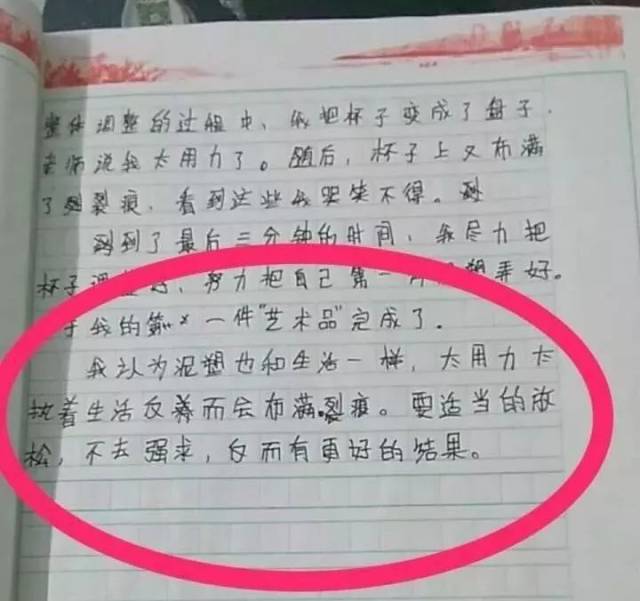 整体调整的过程中，我把杯子变成了盘子，
老师说我太用力了。随后，杯子上又布满
了裂痕，看到这些我哭笑不得。
到了最后三分钟的时间，我尽力把
杯子调整好，努力把自己第一件 塑弄好。
于 我的第 一件"艺术品"完成了。
我认为泥塑也和生活一样，太用力太
执着生活反 而会布满裂痕。要适当的放
松，不去强求，反而有更好的结果。